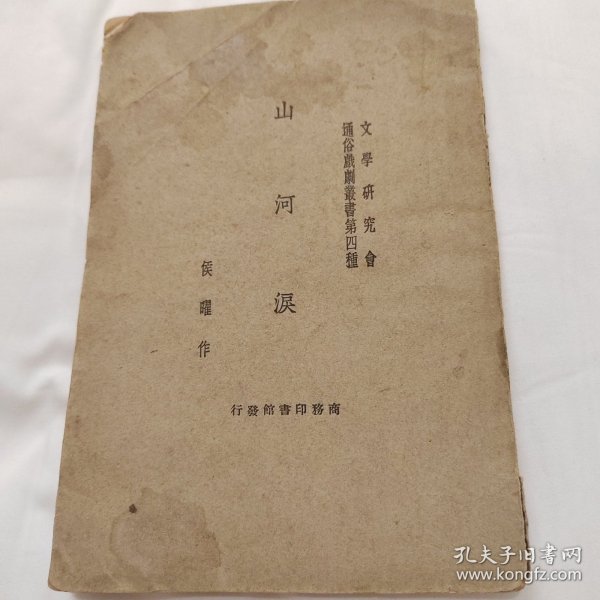 文學研究會
通俗戲劇叢書第四種
山河淚
侯曜作
商務印書館發行
孔夫子旧书网
www.kongfz.com